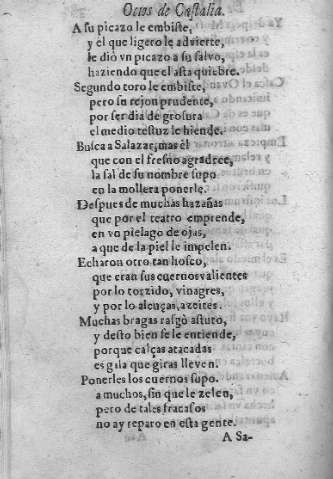 Ocios de Castalia.
A su picazo le embiste,
y él que ligero le advierte,
le dió vn picazo a su salvo,
haziendo que el asta quiebre.
Segundo toro le embiste,
pero su rejon prudente,
por ser dia de grosura
el medio testuz le hiende.
Busca a Salazar, mas èl
que con el fresno agradece,
la sal de su nombre supo
en la mollera ponerle.
Despues de muchas hazañas
que por el teatro emprende,
en vn pielago de ojas,
a que de la piel le impelen.
Echaron otro tan hosco,
que eran sus cuernos valientes
por lo torzido, vinagres,
y por lo alcuças, azeites.
Muchas bragas rasgò astuto,
y desto bien se le entiende,
porque calças atacadas
es gila que giras lleven.
Ponerles los cuernos supo.
a muchos, sin que le zelen,
pero de tales fracasos
no ay reparo en esta gente.
A Sa-